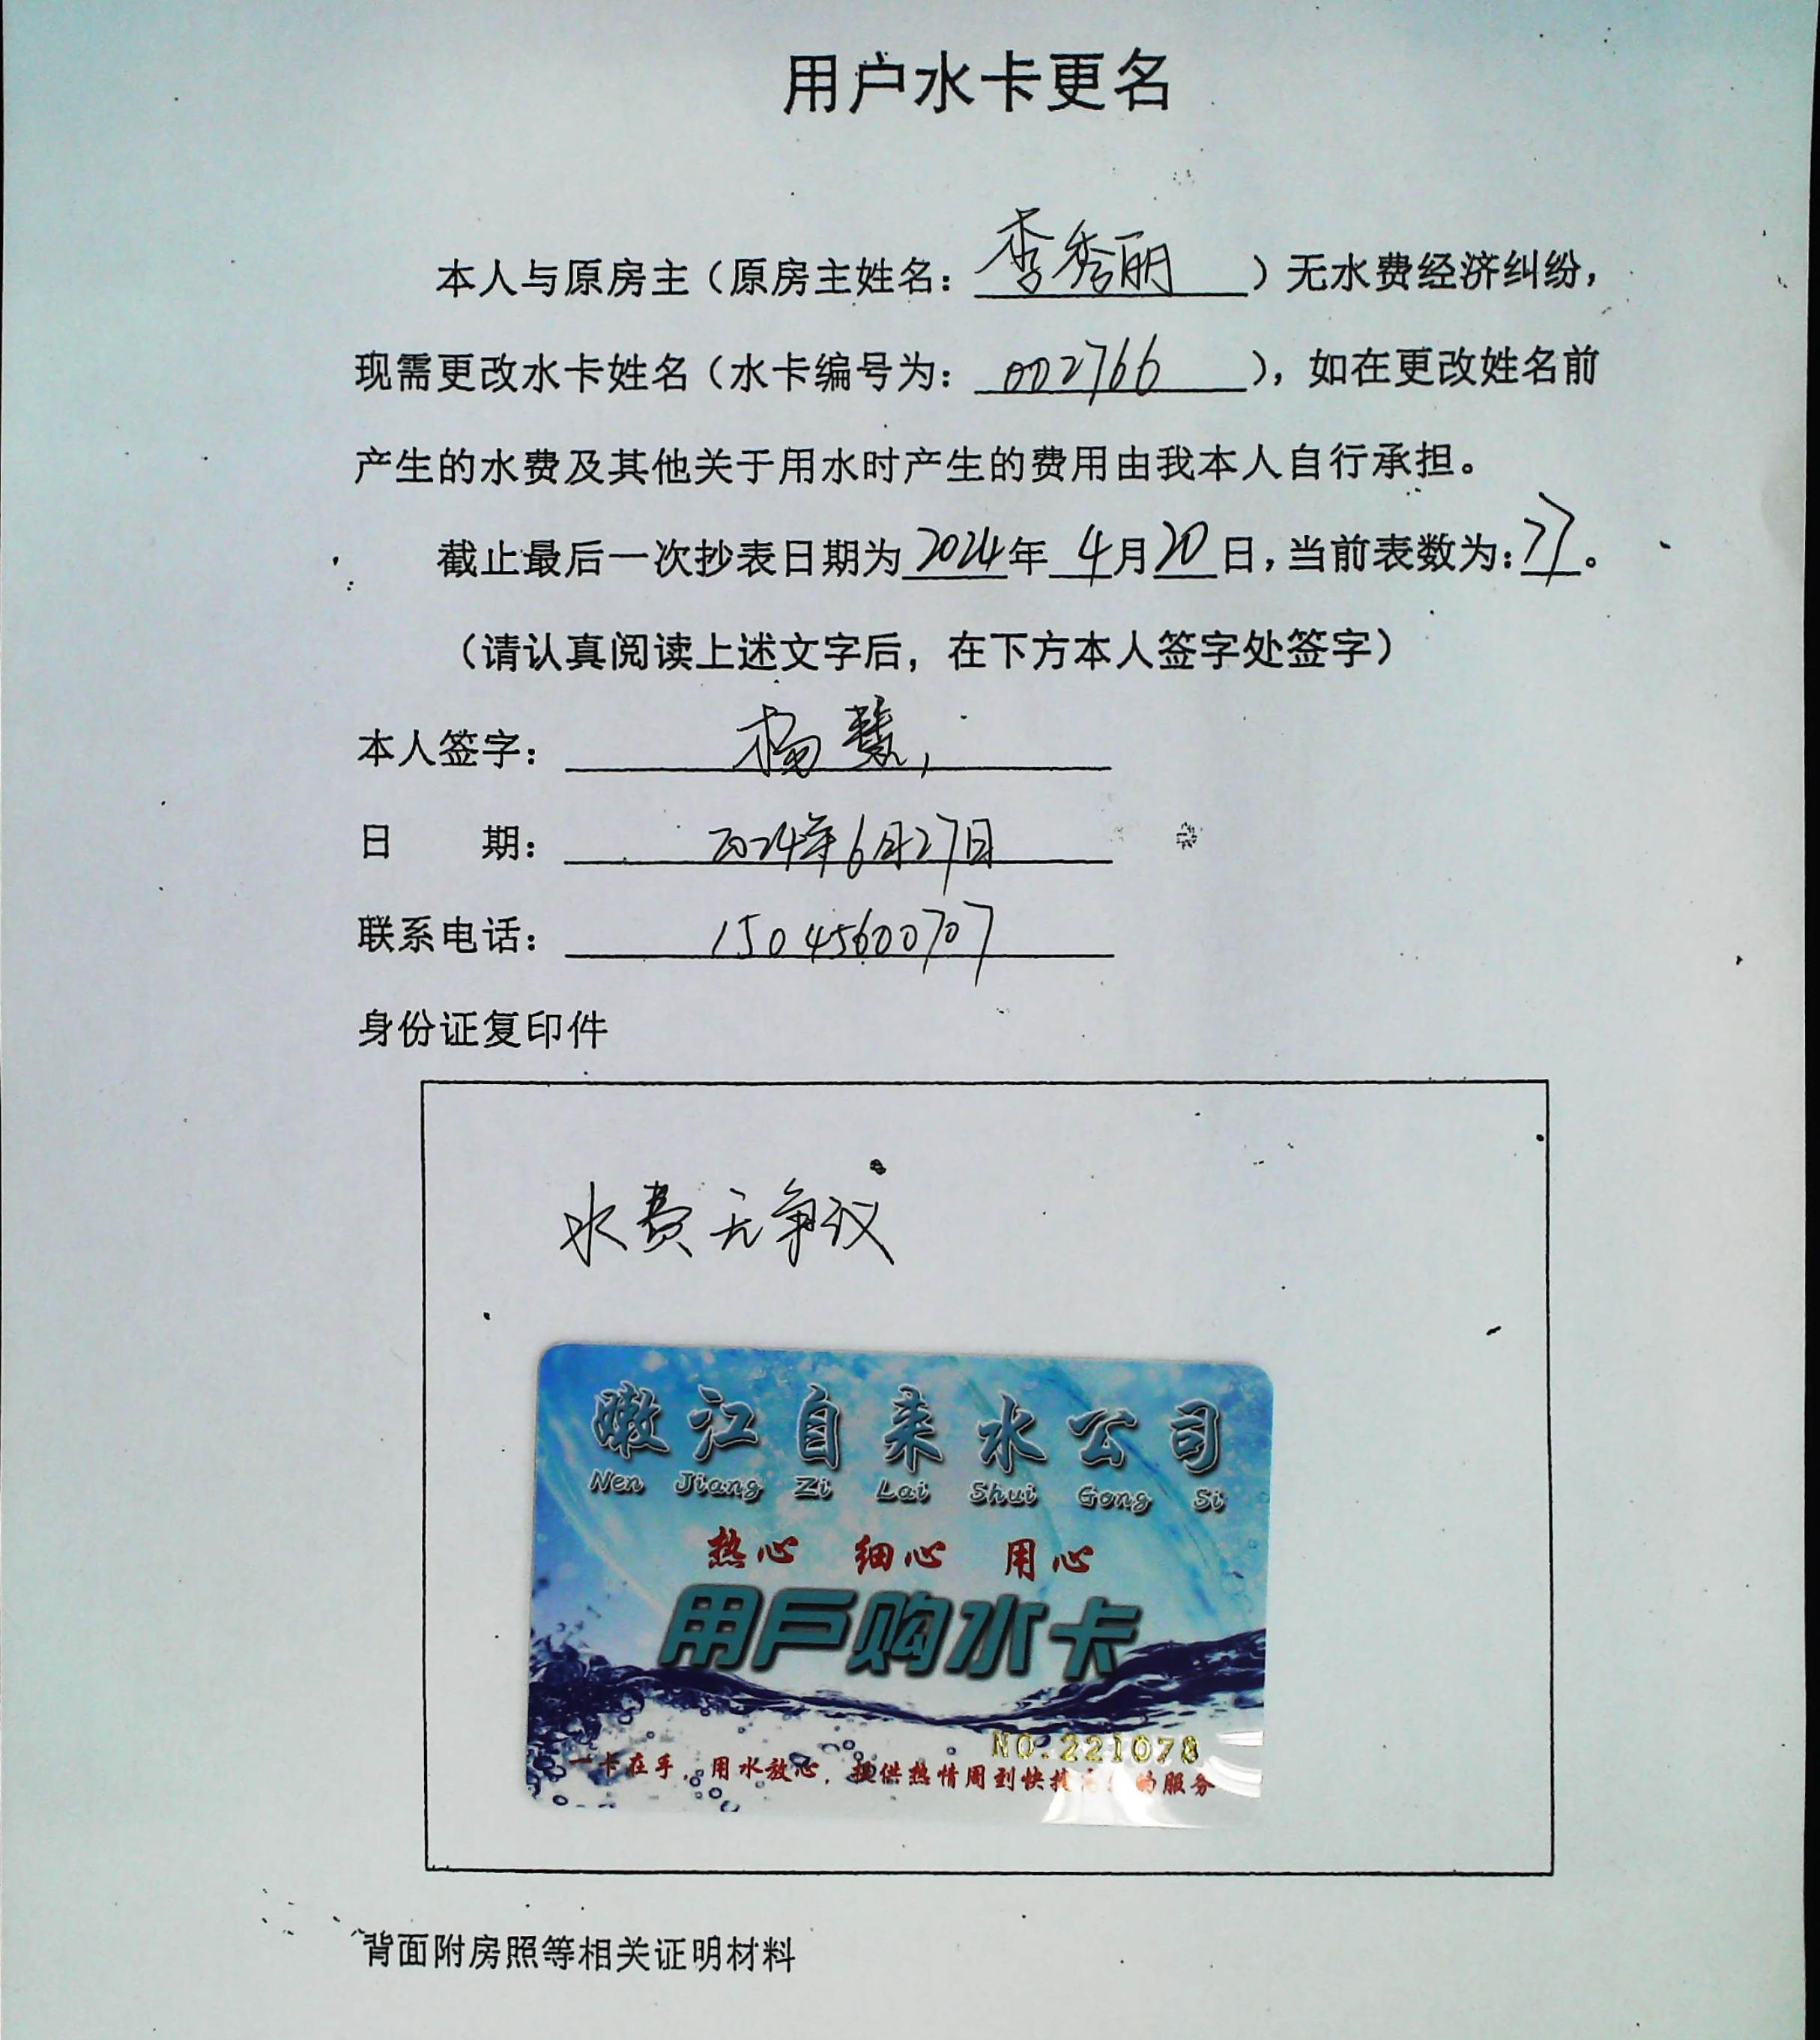 用户水卡更名
本人与原房主（原房主姓名：李秀丽）无水费经济纠纷，
现需更改水卡姓名（水卡编号为：002766），如在更改姓名前
产生的水费及其他关于用水时产生的费用由我本人自行承担。
截止最后一次抄表日期为2024年4月20日，当前表数为：77。
（请认真阅读上述文字后，在下方本人签字处签字）
本人签字：杨慧
日 期：2024年6月27日
联系电话：15045600707
身份证复印件
水费无争议
嫩江自来水公司
Nen Jiang Zi Lai Shui Gong Si
热心 细心 用心
用户购水卡
NO.221078
一卡在手，用水放心，提供热情周到快捷的服务
背面附房照等相关证明材料